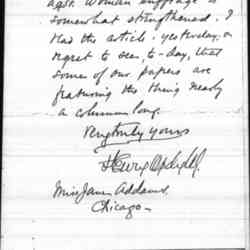 agst. Woman suffrage is
somewhat strengthened. I
read the article yesterday &
regret to see, to-day, that
some of our papers are
featuring the thing nearly
a column long.
Very truly yours
Miss Jane Addams
Chicago